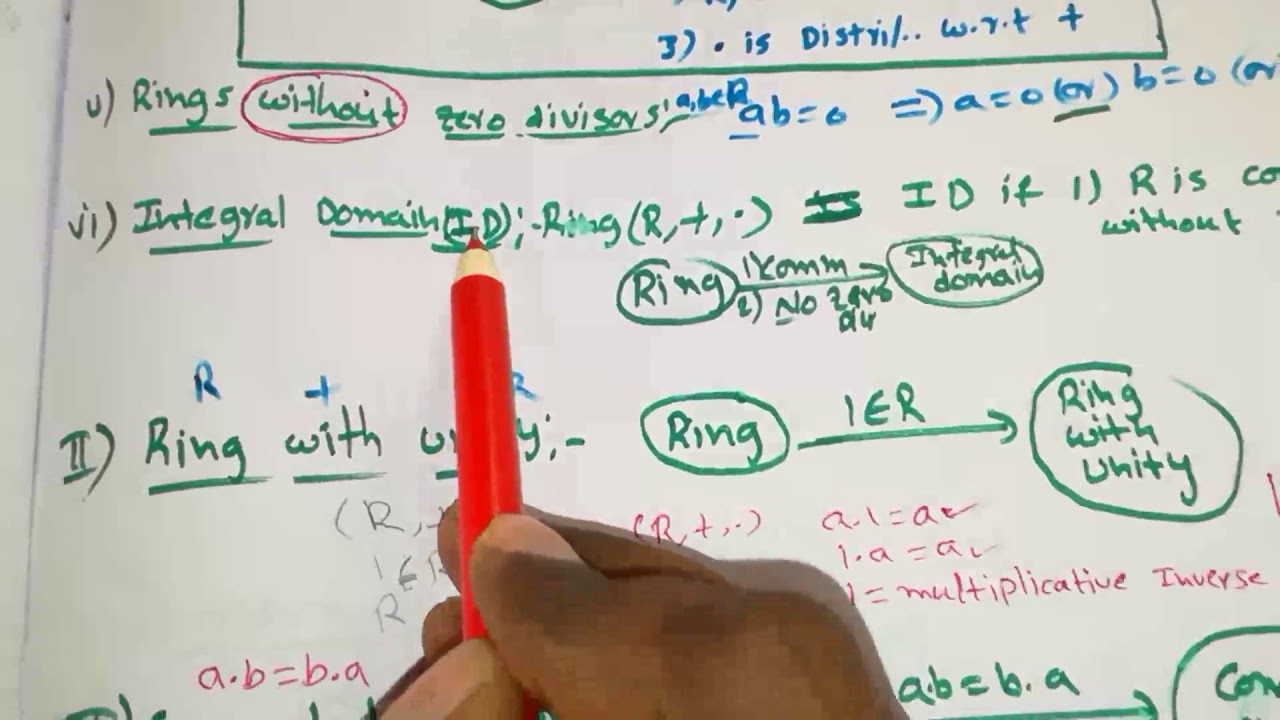 3) . is Distri/.. w.r.t +
v) Rings without zero divisors;- a,b∈R ab=0 => a=0 (or) b=0 (or
vi) Integral Domain (I.D);- Ring (R,+,.) is ID if 1) R is co
without
Ring 1) comm Integral domain
2) No zero div
R +
II) Ring with unity;- Ring 1∈R Ring with unity
(R, (R,+,.) a.1=a
1∈R 1.a=a
R 1=multiplicative Inverse
a.b=b.a a.b=b.a Com